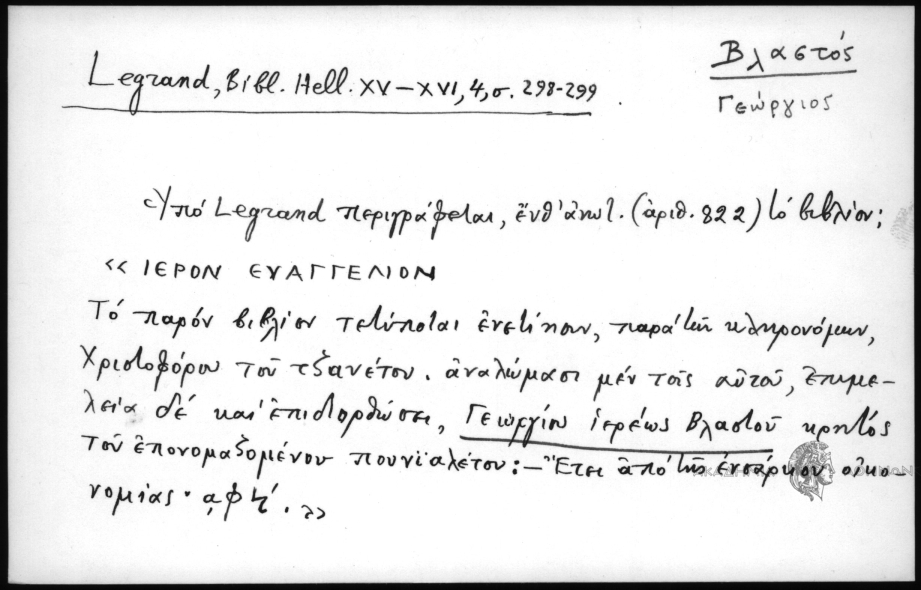 Βλαστός
Γεώργιος
Legrand, Bibl. Hell. XV–XVI, 4, σ. 298-299
Ὑπό Legrand περιγράφεται, ἔνθ' ἀνωτ. (ἀριθ. 822) τό βιβλίον:
<< ΙΕΡΟΝ ΕΥΑΓΓΕΛΙΟΝ
Τό παρόν βιβλίον τετύπωται ἐνετίησιν, παρά τῶν κληρονόμων,
Χριστοφόρου τοῦ τζανέτου. ἀναλώμασι μέν τοῖς αὐτοῦ, Ἐπιμε-
λεία δέ καί ἐπιδιορθώσει, Γεωργίου ἱερέως Βλαστοῦ κρητός
τοῦ ἐπονομαζομένου πουνιαλέτου: – Ἔτει ἀπό τῆς ἐνσάρκου οἰκο-
νομίας· ͵αφϟ΄. >>